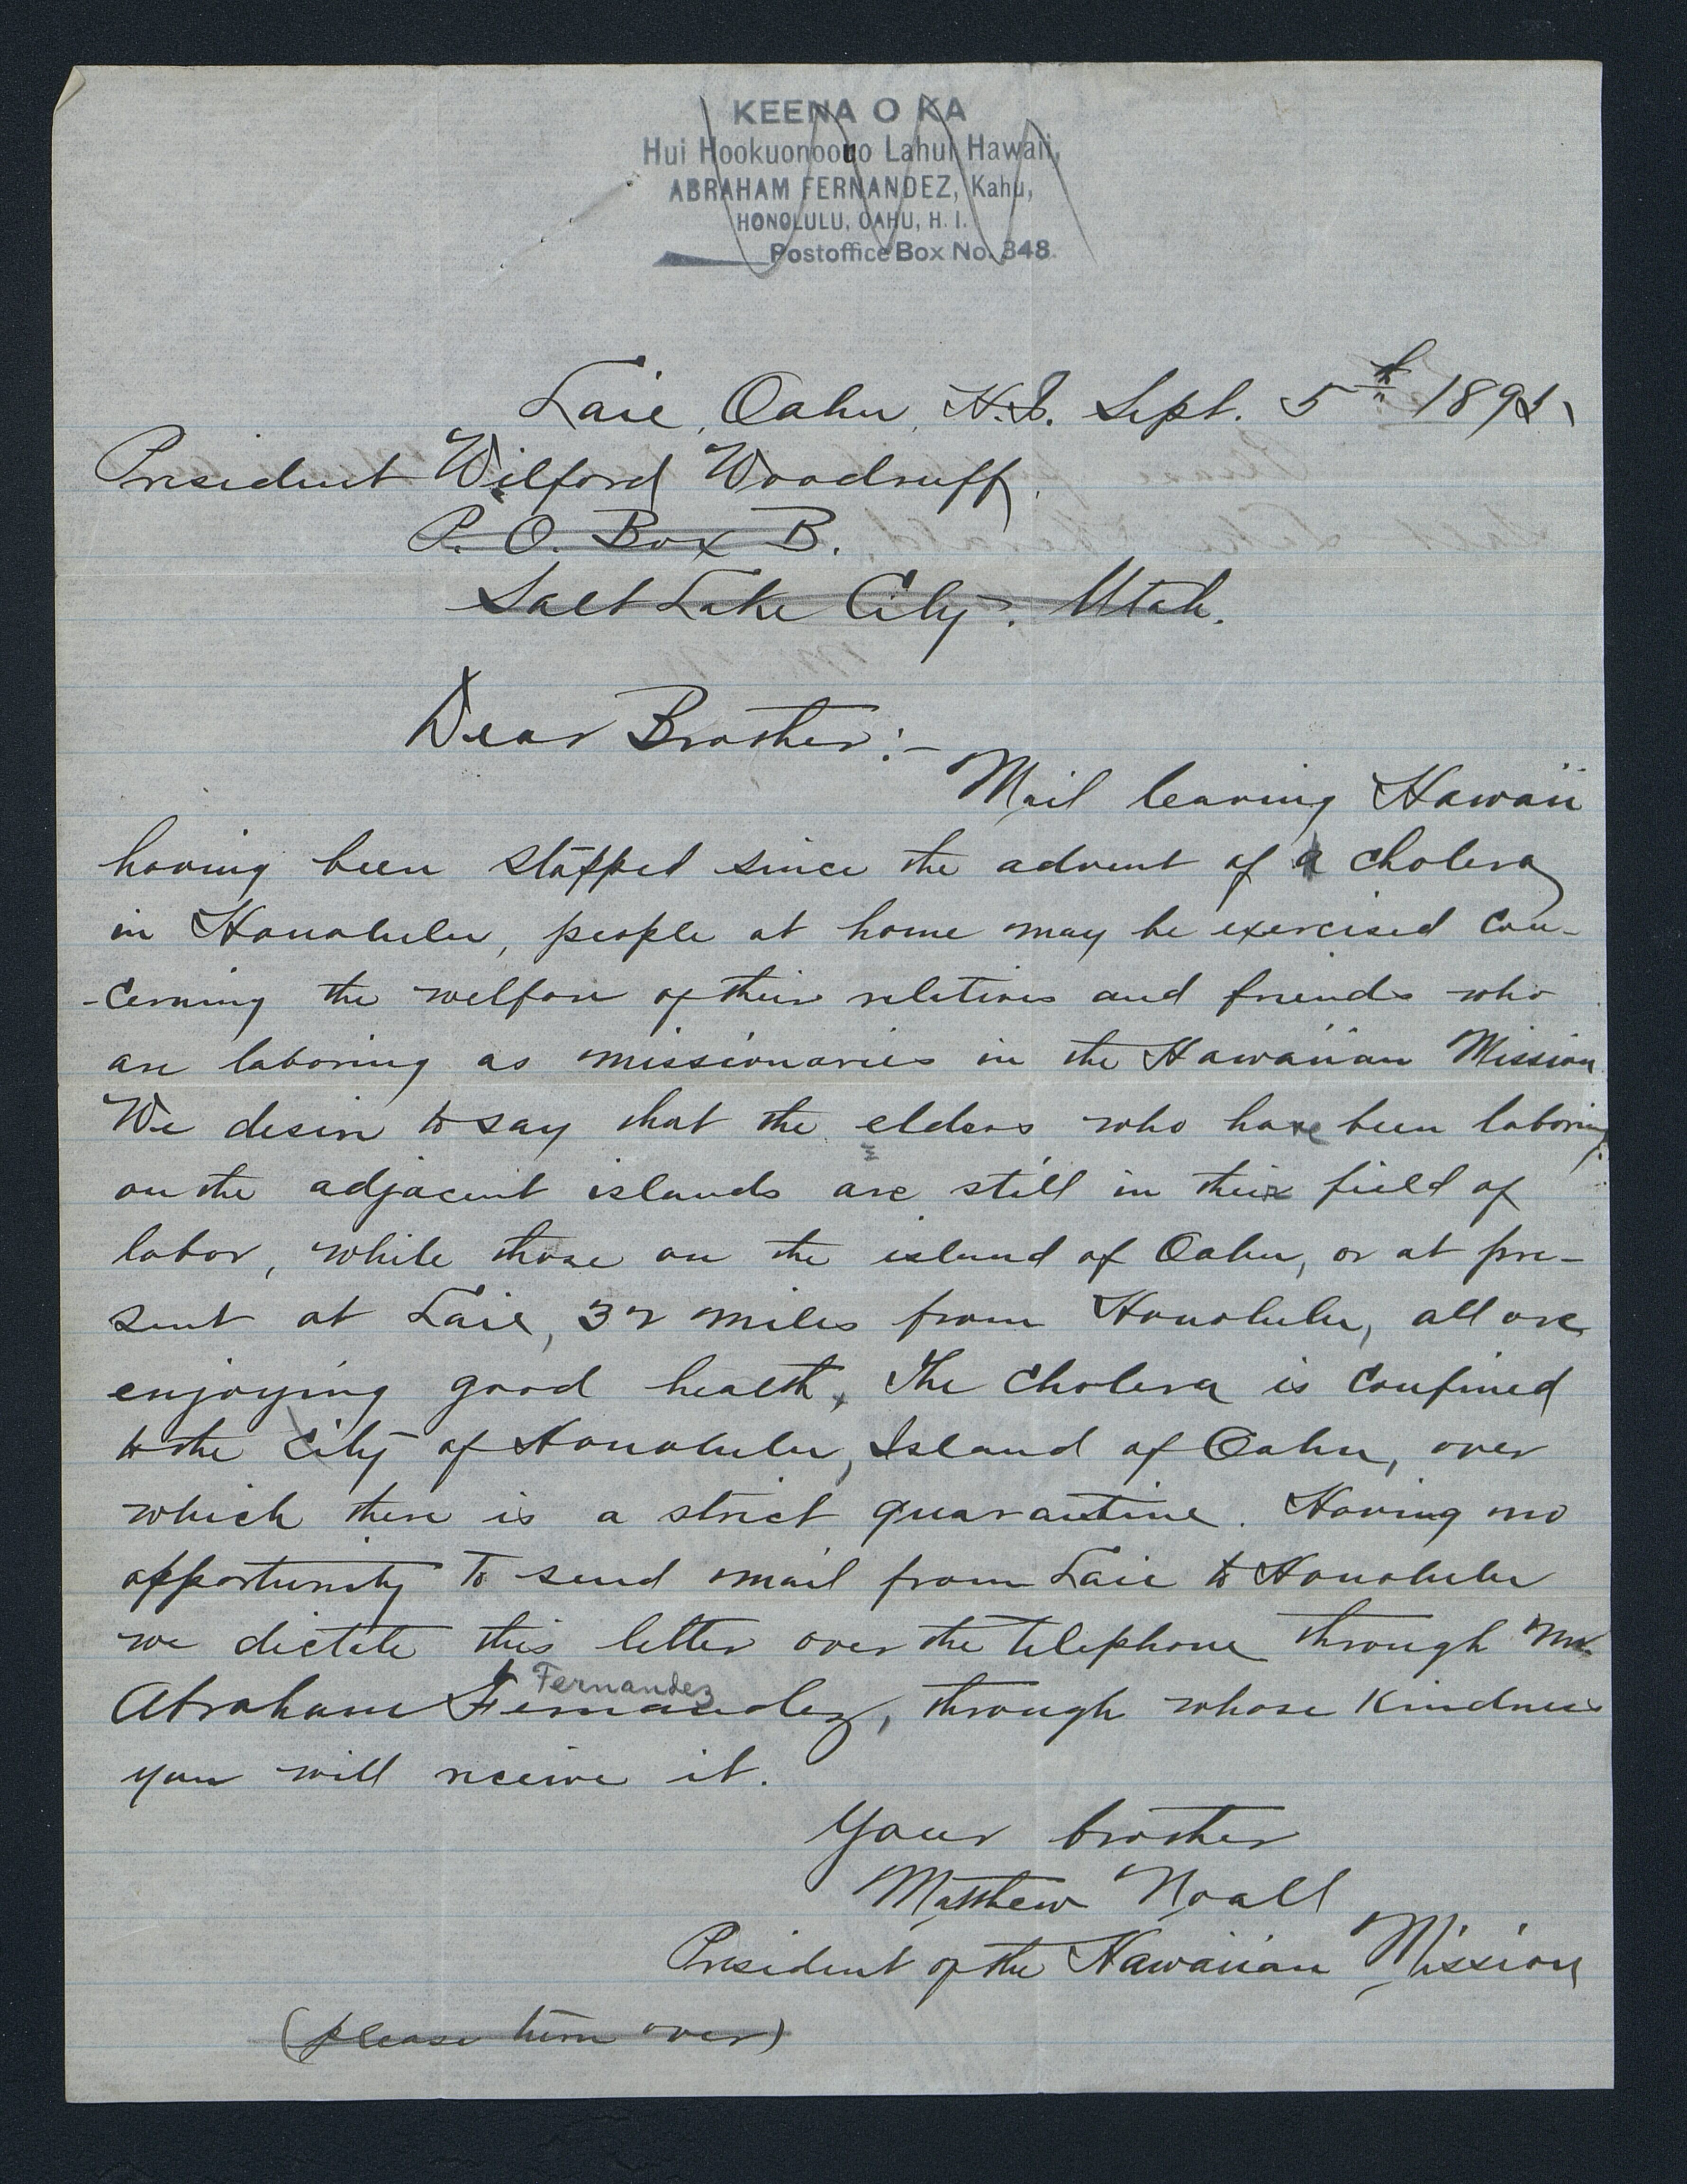 KEENA O KA
Hui Hookuonoono Lahui Hawaii,
ABRAHAM FERNANDEZ, Kahu,
HONOLULU, OAHU, H. I.
Postoffice Box No. 348.
Laie, Oahu, H.I. Sept. 5th 1895
President Wilford Woodruff.
P. O. Box B.
Salt Lake City. Utah.
Dear Brother:-
Mail leaving Hawaii
having been stopped since the advent of cholera
in Honolulu, people at home may be exercised con-
-cerning the welfare of their relatives and friends who
are laboring as missionaries in the Hawaiian Mission
We desire to say that the elders who have been laboring
on the adjacent islands are still in their field of
labor, while those on the island of Oahu, or at pre-
sent at Laie, 32 miles from Honolulu, all are
enjoying good health, The Cholera is confined
to the City of Honolulu, Island of Oahu, over
which there is a strict quarantine. Having no
opportunity to send mail from Laie to Honolulu
we dictate this letter over the telephone through Mr.
Fernandez
Abraham Fernandez, through whose kindness
you will receive it.
Your brother
Matthew Noall
President of the Hawaiian Mission
(please turn over)